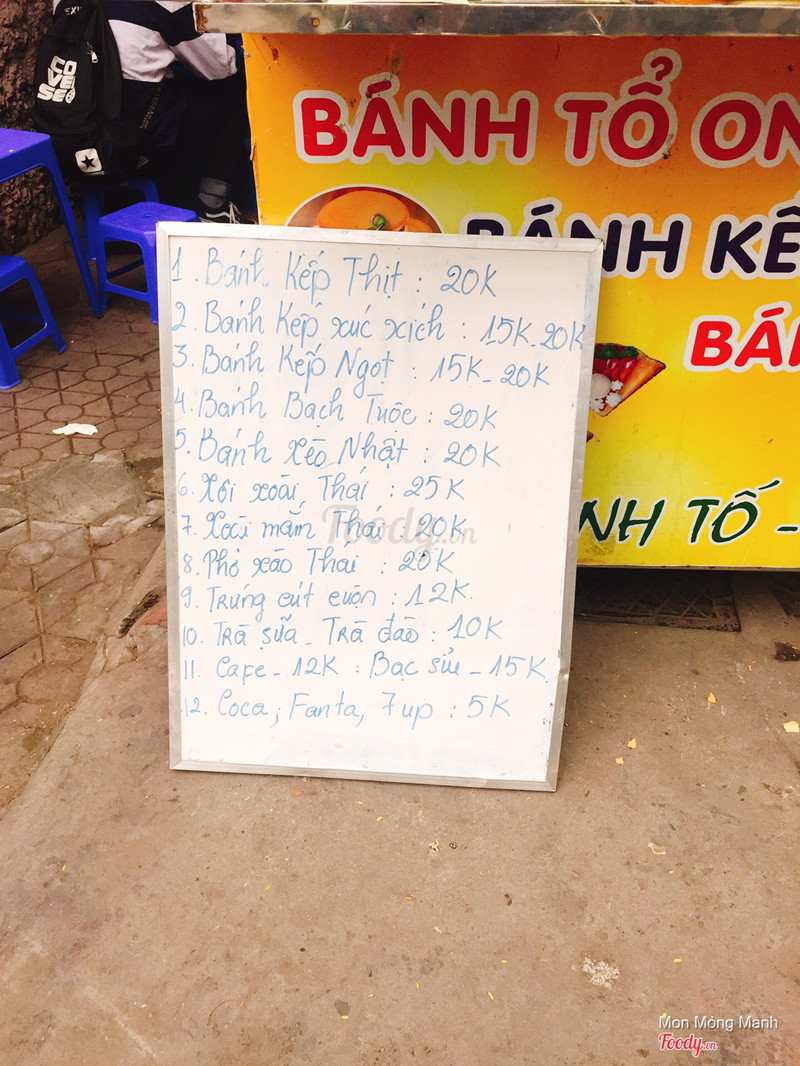 CONVERSE
BÁNH TỔ ON
BÁNH KẾ
BÁN
NH TỐ -
1. Bánh Kếp Thịt : 20K
2. Bánh Kếp xúc xích : 15K-20K
3. Bánh Kếp Ngọt : 15K-20K
4. Bánh Bạch Tuộc : 20K
5. Bánh Xèo Nhật : 20K
6. Xôi xoài Thái : 25K
7. Xoài mắm Thái : 20K
8. Phở xào Thái : 20K
9. Trứng cút cuộn : 12K
10. Trà sữa - Trà đào : 10K
11. Cafe - 12K : Bạc sỉu - 15K
12. Coca, Fanta, 7up : 5K
Foody.vn
Mon Mỏng Manh
Foody.vn